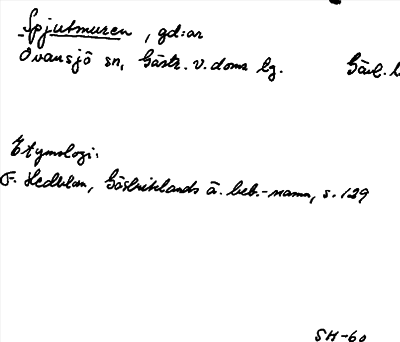 Spjutmuren, gd:ar
Ovansjö sn, Gästr. v. doms lg. Gävl. l
Etymologi:
F. Hedblom, Gästriklands ä. beb.-namn, s. 129
SH-60